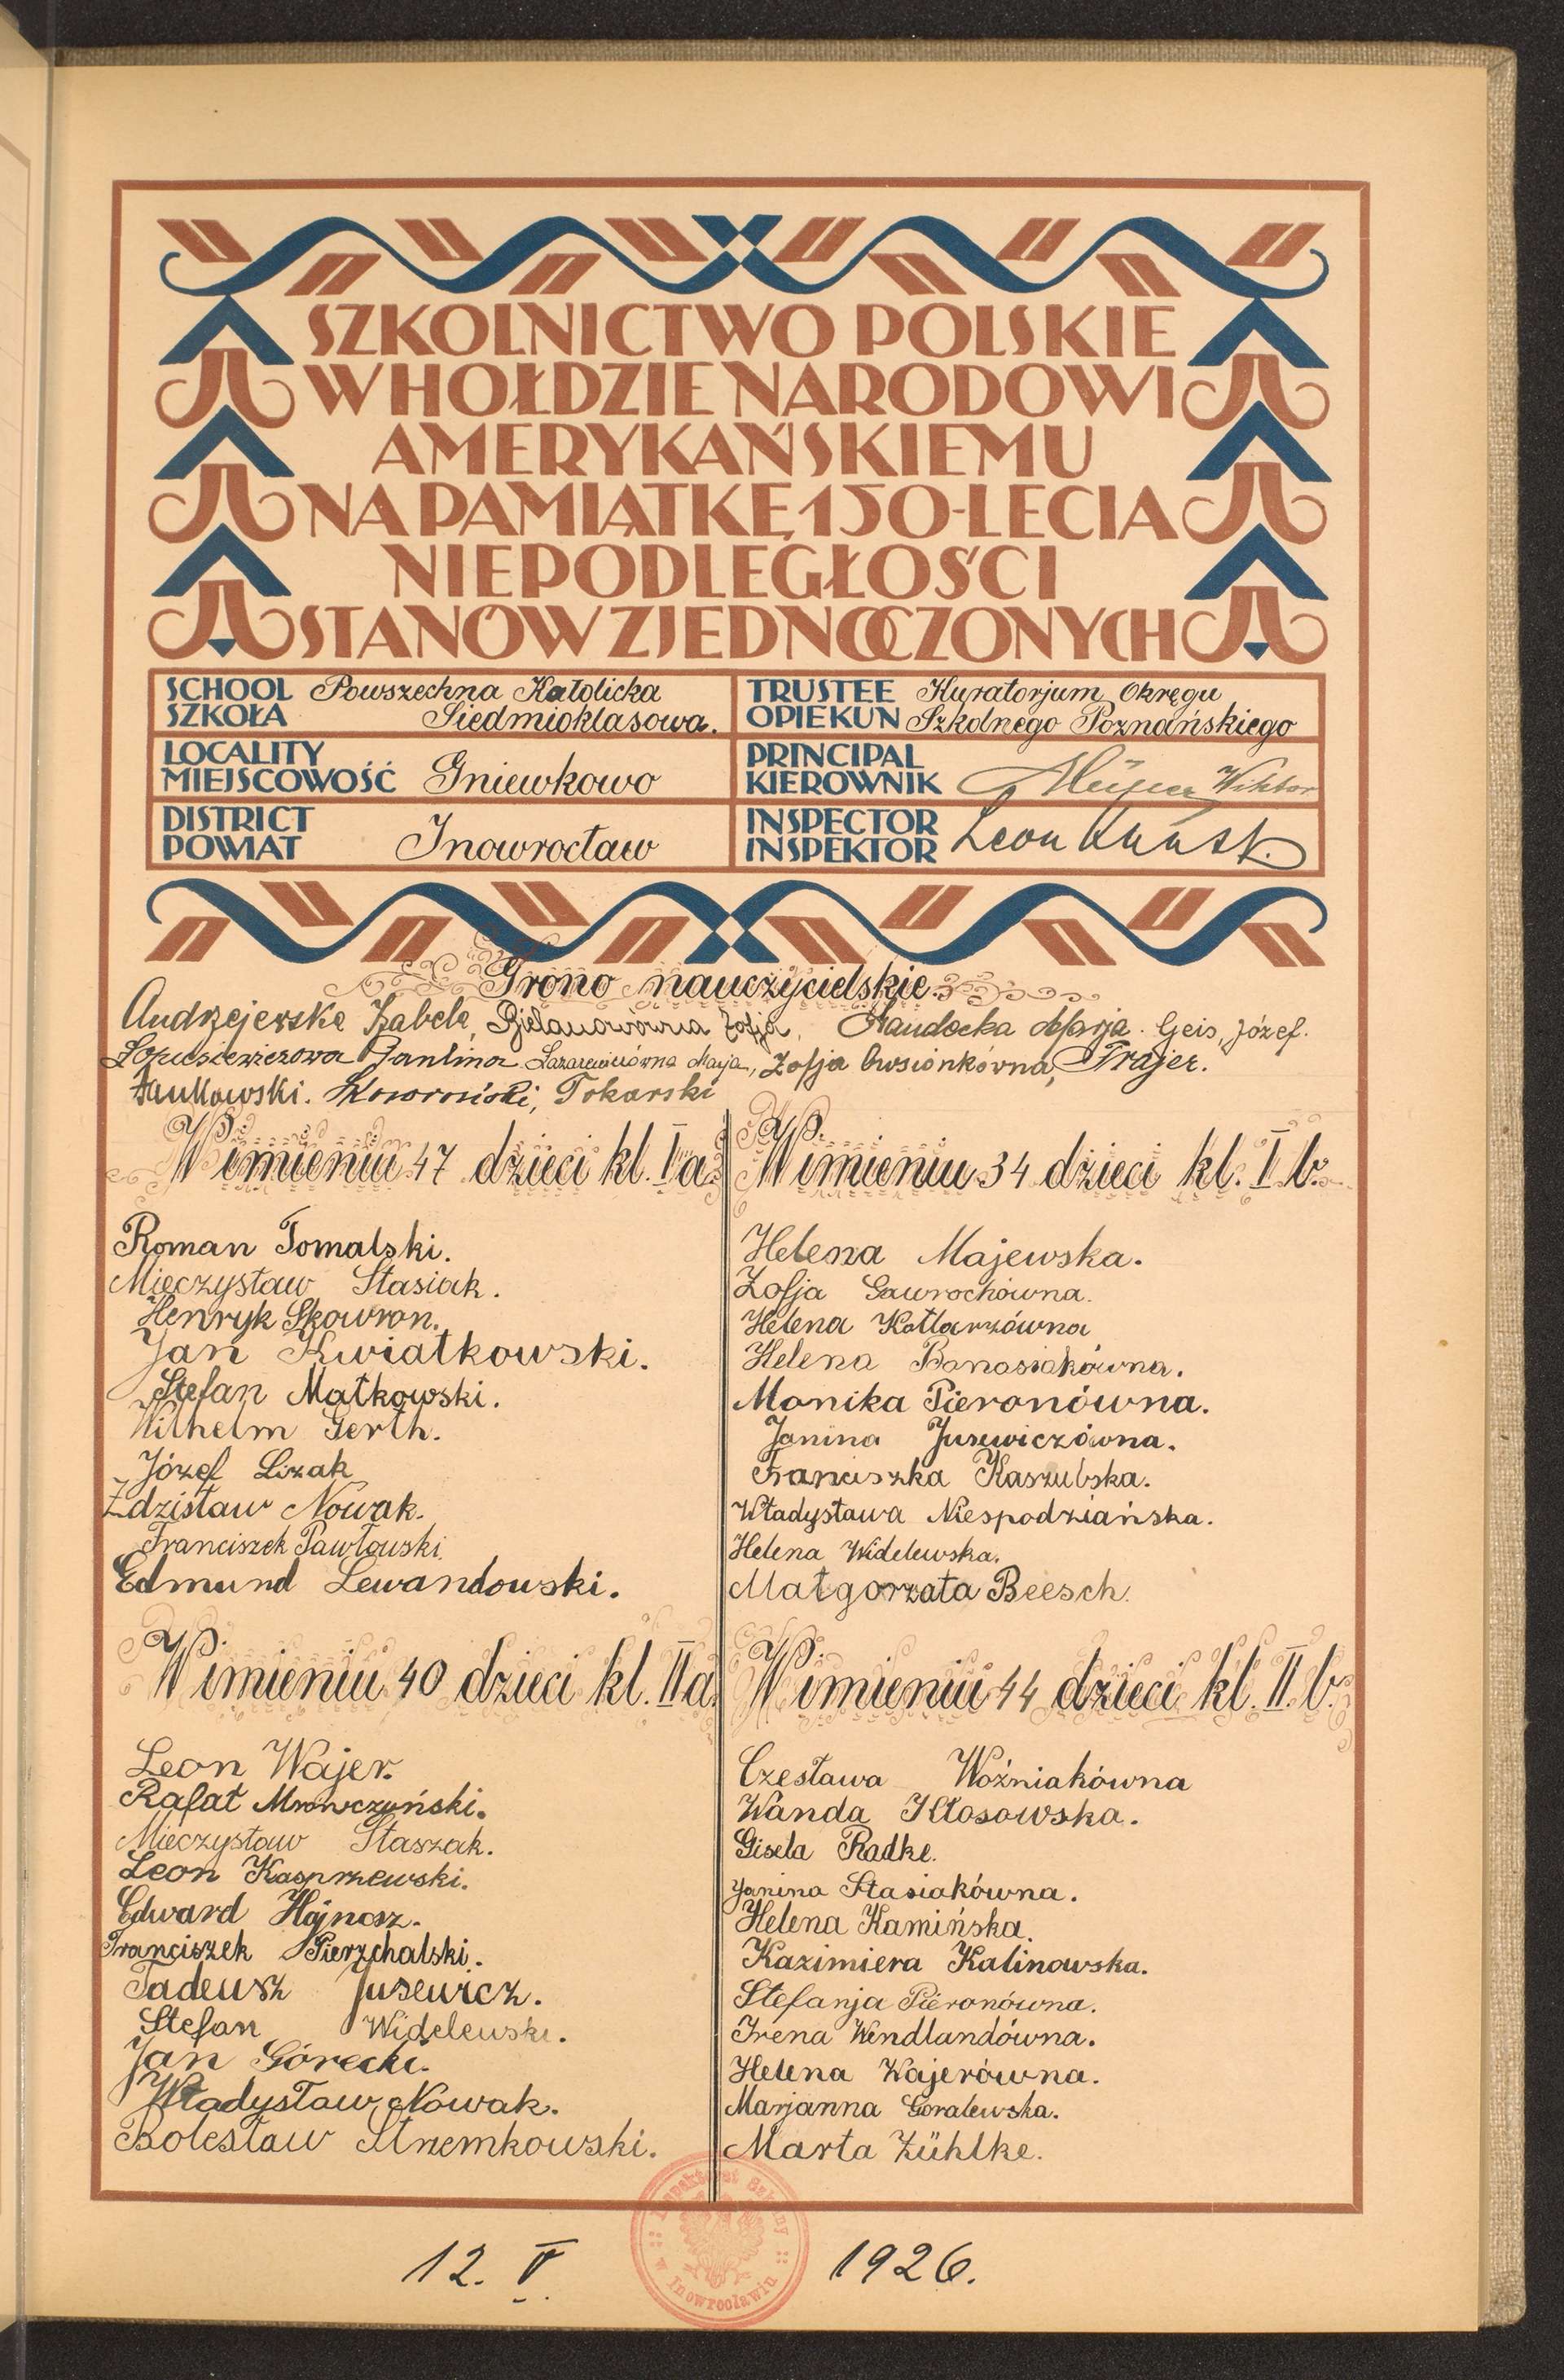 SZKOLNICTWO POLSKIE
W HOŁDZIE NARODOWI
AMERYKAŃSKIEMU
NA PAMIĄTKĘ 150-LECIA
NIEPODLEGŁOŚCI
STANÓW ZJEDNOCZONYCH
SCHOOL SZKOŁA Powszechna Katolicka
Siedmioklasowa.
TRUSTEE OPIEKUN Kuratorjum Okręgu
Szkolnego Poznańskiego
LOCALITY
MIEJSCOWOŚĆ Gniewkowo
PRINCIPAL
KIEROWNIK Wiktor
DISTRICT
POWIAT Inowrocław
INSPECTOR
INSPEKTOR Leon
Grono nauczycielskie.
Andrzejewska Izabela, Bielanówna Zofja, Marja. Geis, Józef.
Łopusiewiczowa Paulina Łazarewiczówna Marja, Zofja Owsionkówna, Frajer.
Jankowski. Skoroński, Tokarski
W imieniu 47 dzieci kl. I a.
Roman Tomalski.
Mieczysław Stasiak.
Henryk Skowron.
Jan Kwiatkowski.
Stefan Matkowski.
Wilhelm Gerth.
Józef Lizak
Zdzisław Nowak.
Franciszek Pawłowski.
Edmund Lewandowski.
W imieniu 34 dzieci kl. I b.
Helena Majewska.
Zofja Gawrochówna.
Helena Kotlarzówna
Helena Banasiakówna.
Monika Pieronówna.
Janina Jusewiczówna.
Franciszka Kaszubska.
Władysława Niespodziańska.
Helena Widelewska.
Małgorzata Beesch.
W imieniu 40 dzieci kl. II a.
Leon Wajer.
Rafał Mrowczyński.
Mieczysław Staszak.
Leon Kasprzewski.
Edward Hajnosz.
Franciszek Pierzchalski.
Tadeusz Jusewicz.
Stefan Widelewski.
Jan Górecki.
Władysław Nowak.
Bolesław Strzemkowski.
W imieniu 44 dzieci kl. II. b.
Czesława Woźniakówna
Wanda Kłosowska.
Gisela Radke.
Janina Stasiakówna.
Helena Kamińska.
Kazimiera Kalinowska.
Stefanja Pieronówna.
Irena Wendlandówna.
Helena Wajerówna.
Marjanna Goralewska.
Marta Zühlke.
Inspektorat Szkolny
w Inowrocławiu
12. V. 1926.